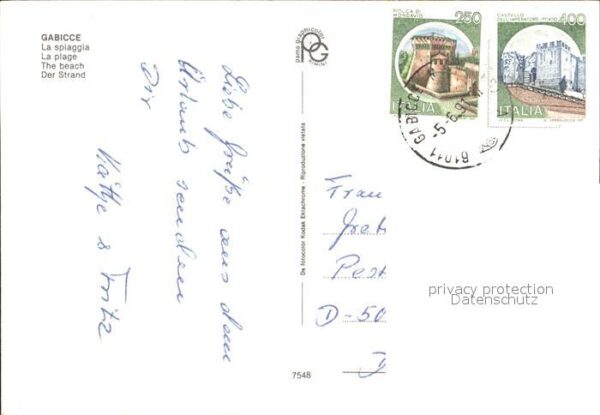 GABICCE
La spiaggia
La plage
The beach
Der Strand
Liebe Grüße aus dem
Urlaub senden
Dir
Käthe & Fritz
De fotocolor Kodak Ektachrome - Riproduzione vietata
7548
ROCCA DI MONDAVIO
250
ITALIA
CASTELLO
DELL'IMPERATORE - PRATO
400
ITALIA
61011 GABICCE
-5-6.9
Frau
Gret
Post
D-50
privacy protection
Datenschutz